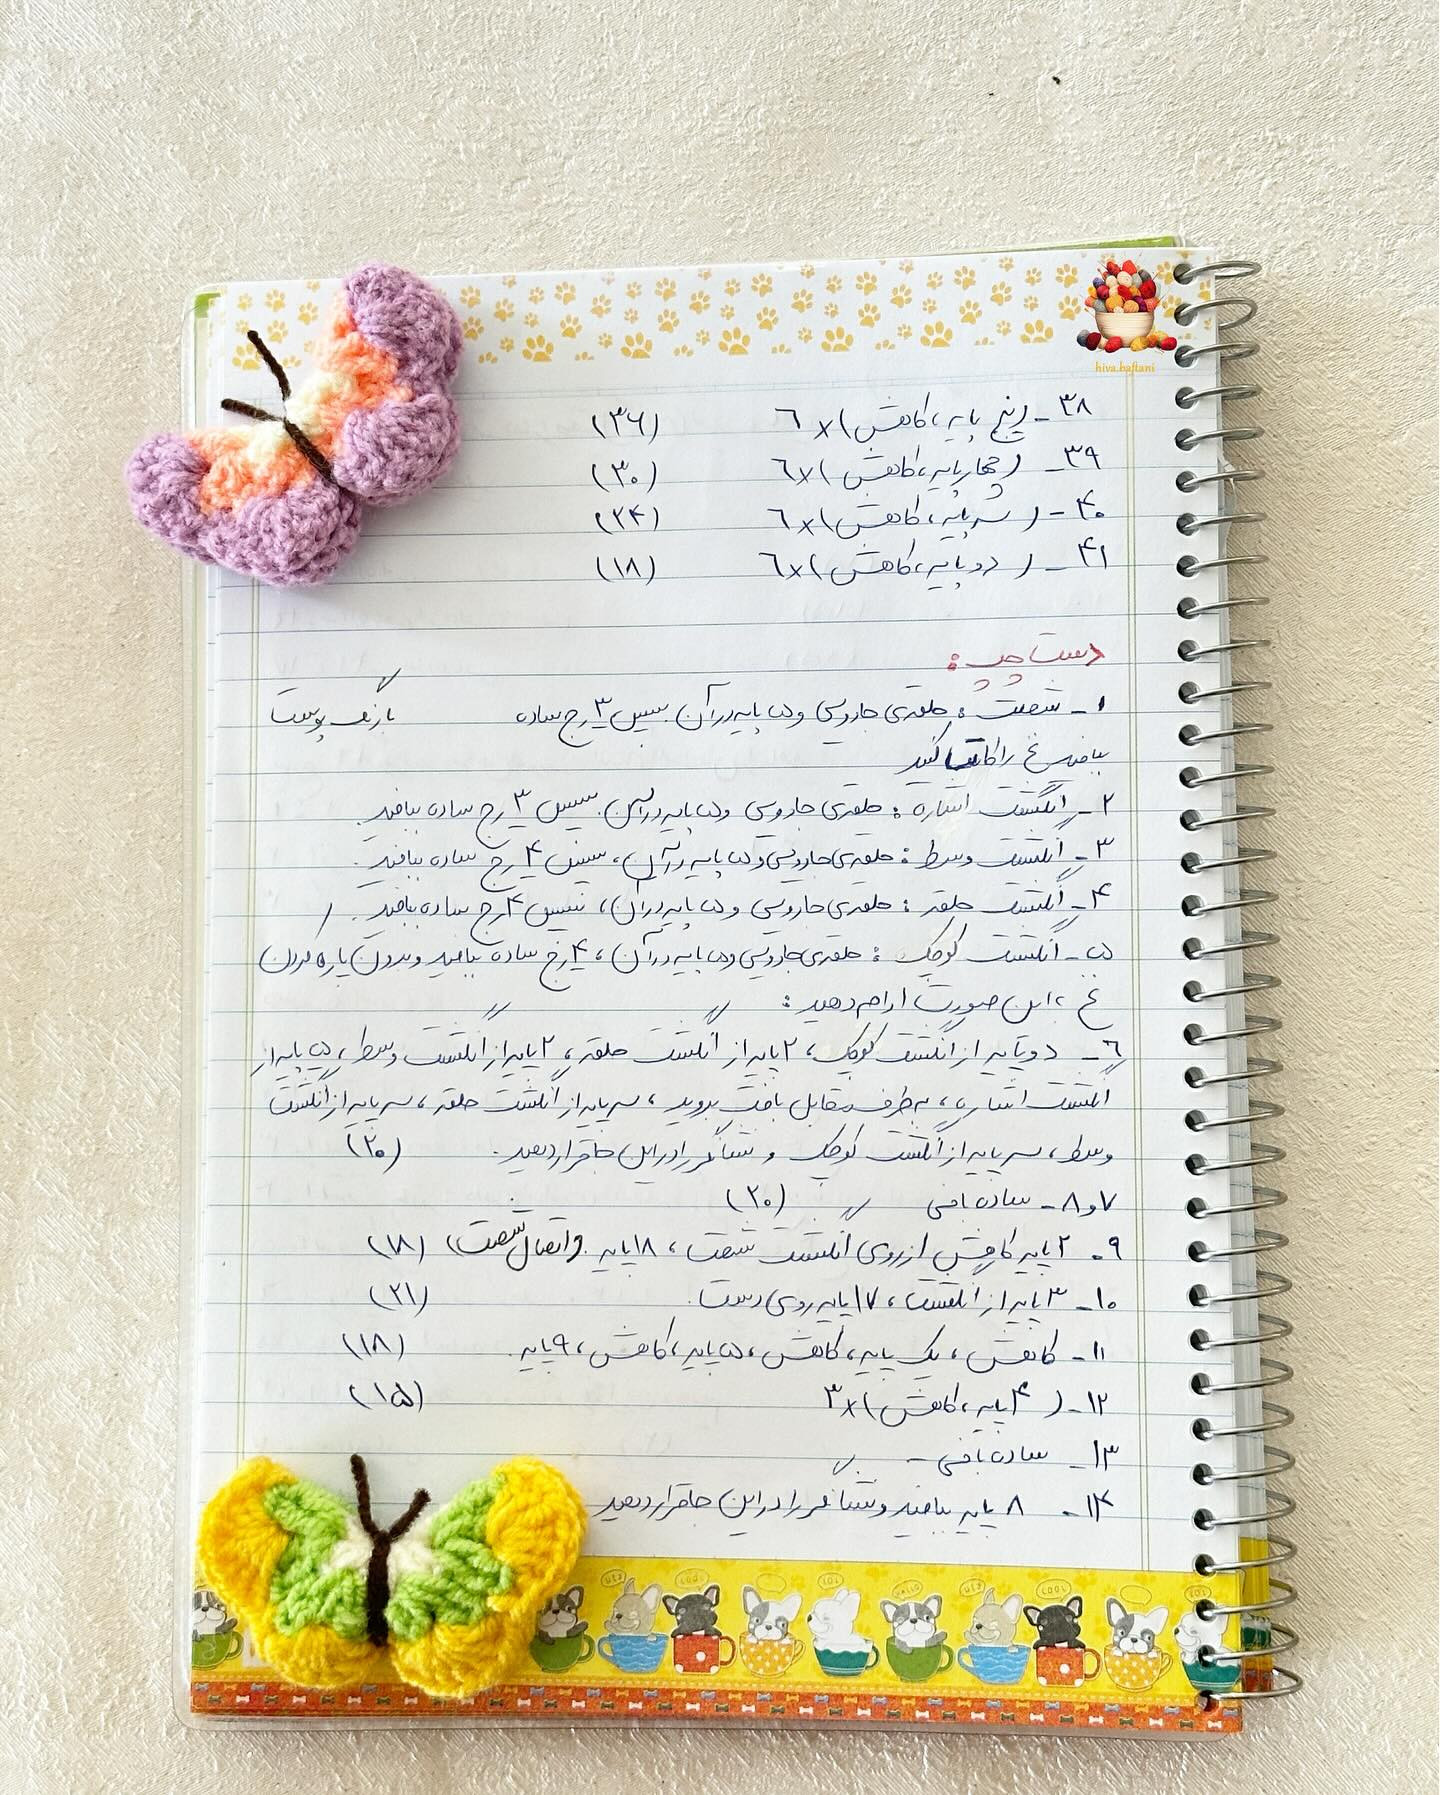 hiva.baftani
۳۸- (پنج پایه، کاهش) x ۶ (۳۶)
۳۹- (چهارپایه، کاهش) x ۶ (۳۰)
۴۰- (سه پایه، کاهش) x ۶ (۲۴)
۴۱- (دو پایه، کاهش) x ۶ (۱۸)
دست چپ:
۱- شصت: حلقه‌ی جادویی و ۵ پایه در آن. سپس ۳ رج ساده با رنگ پوست
ببافید نخ را کات کنید
۲- انگشت اشاره: حلقه‌ی جادویی و ۵ پایه در آن. سپس ۳ رج ساده ببافید.
۳- انگشت وسط: حلقه‌ی جادویی و ۵ پایه در آن، سپس ۴ رج ساده ببافید.
۴- انگشت حلقه: حلقه‌ی جادویی و ۵ پایه در آن، سپس ۴ رج ساده ببافید.
۵- انگشت کوچک: حلقه‌ی جادویی و ۵ پایه در آن، ۴ رج ساده ببافید و بدون پاره کردن
نخ به این صورت ادامه دهید:
۶- دو پایه از انگشت کوچک، ۲ پایه از انگشت حلقه، ۲ پایه از انگشت وسط، ۵ پایه از
انگشت اشاره، به طرف مقابل بافت بروید، سه پایه از انگشت حلقه، سه پایه از انگشت
وسط، سه پایه از انگشت کوچک و نشانگر را در این جا قرار دهید. (۲۰)
۷و۸- ساده بافی (۲۰)
۹- ۲ پایه کاهش از روی انگشت شصت، ۱۸ پایه. (اتصال شصت) (۱۸)
۱۰- ۳ پایه از انگشت، ۱۷ پایه روی دست. (۲۱)
۱۱- کاهش، یک پایه، کاهش، ۵ پایه، کاهش، ۹ پایه. (۱۸)
۱۲- (۴ پایه، کاهش) x ۳ (۱۵)
۱۳- ساده بافی -
۱۴- ۸ پایه ببافید و نشانگر را در این جا قرار دهید